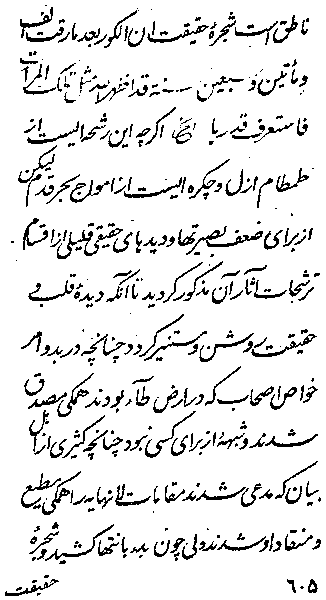 ناطق است شجرهٔ حقیقت ان الکور بعد مارقت الف
و مأتین و سبعین سنه قد اظهر الله مثل تلک المرآت
فاستعرف قدر ربا اگرچه این رشحه ایست از
طمطام ازل و چکره ایست از امواج بحر قدم لیکن
از برای ضعف بصیرتها و دیدهای حقیقی قلیلی از اقسام
ترشحات آثار آن مذکور گردید تا آنکه دیدهٔ قلب و
حقیقت روشن و مستنیر گردد چنانچه در بدو امر
خواص اصحاب که در ارض طآء بودند همگی مصدق
شدند و شبهه از برای کسی نبود چنانچه کثیری از اهل
بیان که مدعی شدند مقامات لانهایه را همگی مطیع
و منقاد او شدند ولی چون بدء بانتها کشید و شجرهٔ
حقیقت
۶۰۵